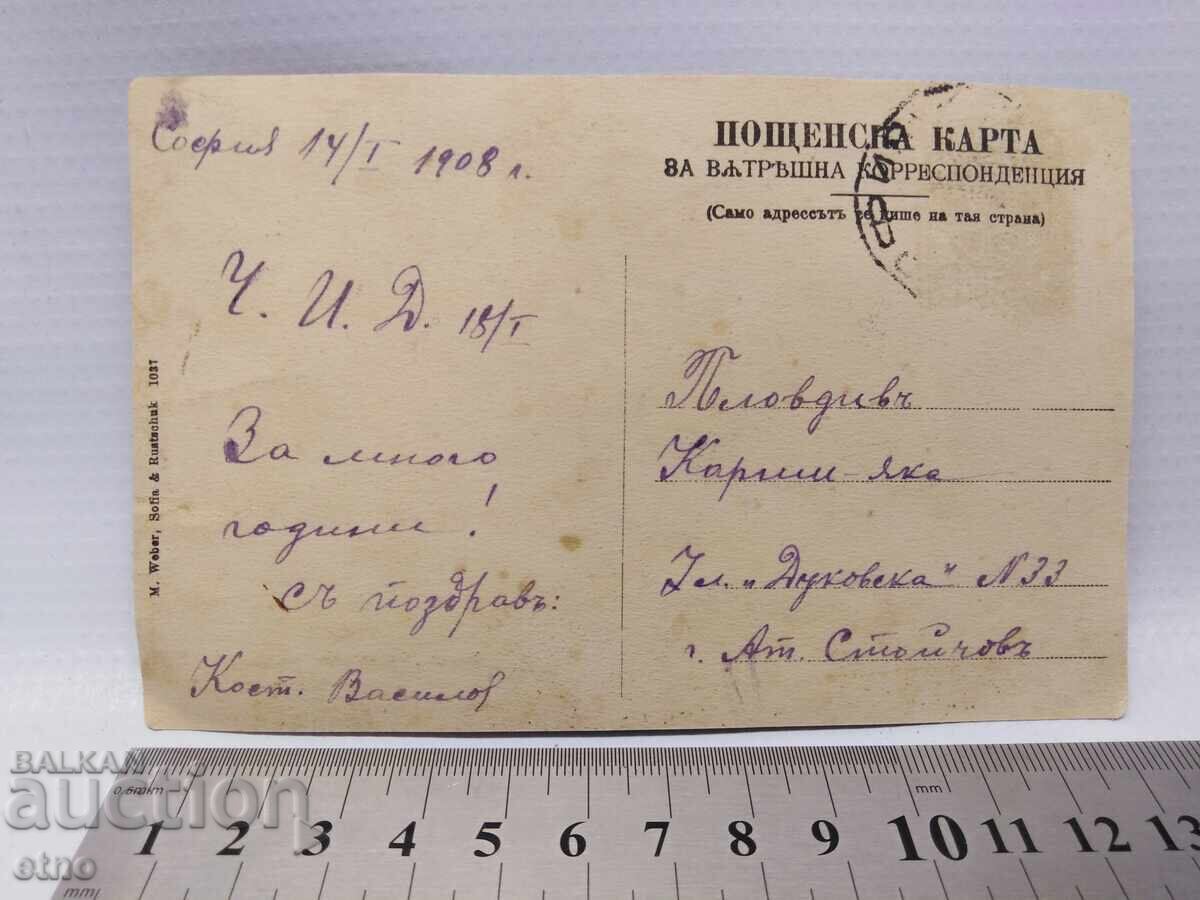 София 14/I 1908 г.
Ч. И. Д. 18/I
За много
години!
съ поздравъ:
Кост. Василов
M. Weber, Sofia & Rustschuk 1037
ПОЩЕНСКА КАРТА
ЗА ВѪТРѢШНА КОРРЕСПОНДЕНЦИЯ
(Само адрессътъ се пише на тая страна)
Пловдивъ
Карши-яка
Ул. "Дуковска" N 33
г. Ат. Стойчовъ
BALKAN
auction
etno
0,5mm mm
1 2 3 4 5 6 7 8 9 10 11 12 13
mm